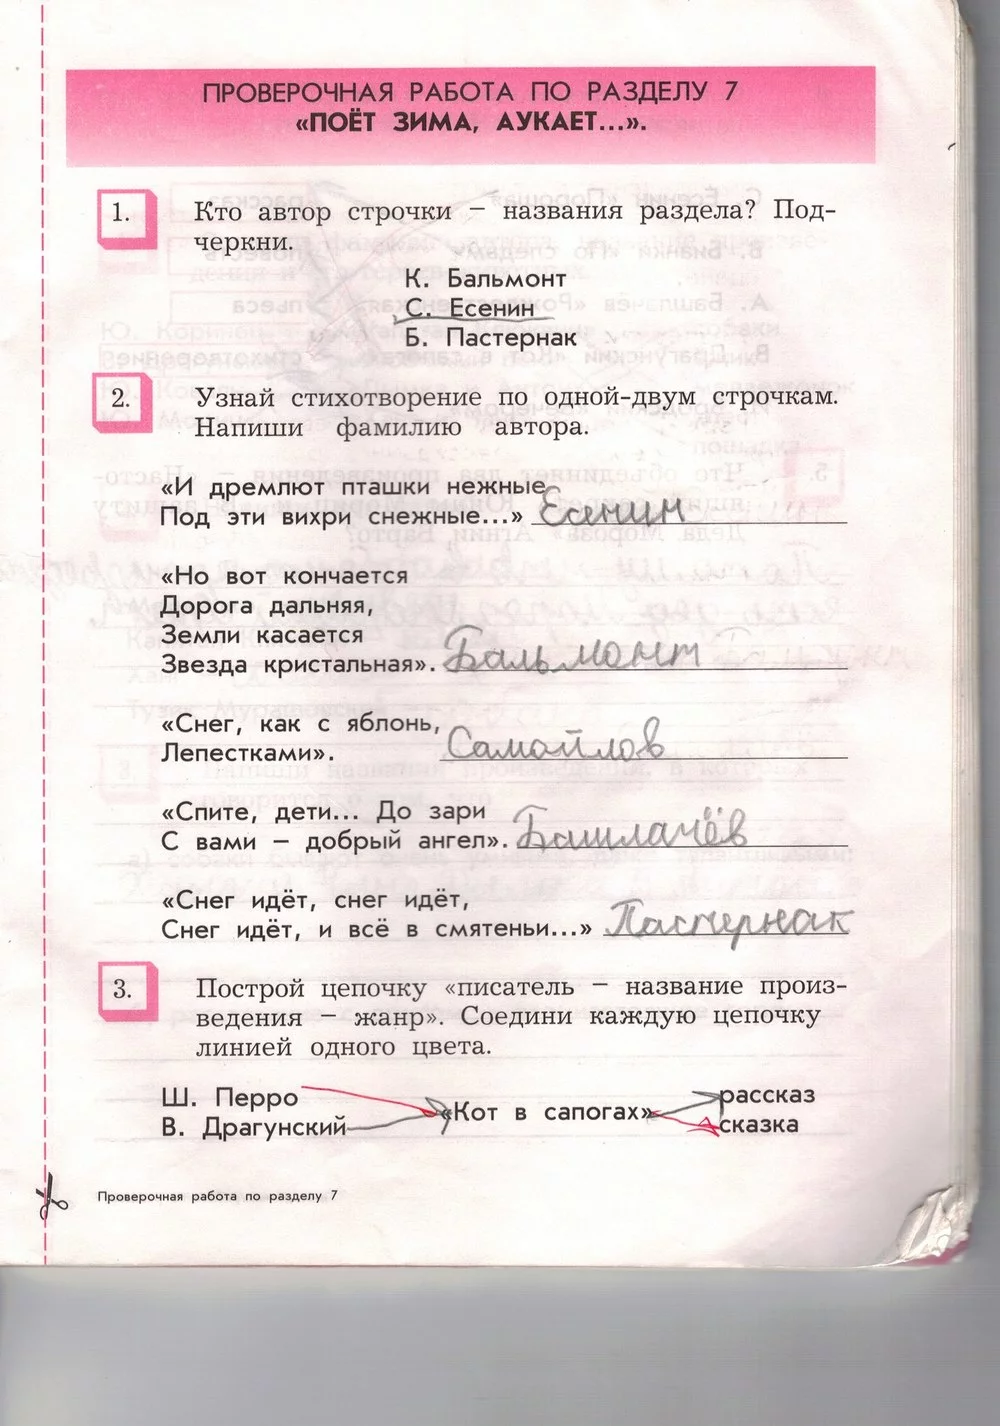 ПРОВЕРОЧНАЯ РАБОТА ПО РАЗДЕЛУ 7
«ПОЁТ ЗИМА, АУКАЕТ...».
1. Кто автор строчки – названия раздела? Под-
черкни.
К. Бальмонт
С. Есенин
Б. Пастернак
2. Узнай стихотворение по одной-двум строчкам.
Напиши фамилию автора.
«И дремлют пташки нежные
Под эти вихри снежные...» Есенин
«Но вот кончается
Дорога дальняя,
Земли касается
Звезда кристальная». Бальмонт
«Снег, как с яблонь,
Лепестками». Самойлов
«Спите, дети... До зари
С вами – добрый ангел». Башлачёв
«Снег идёт, снег идёт,
Снег идёт, и всё в смятеньи...» Пастернак
3. Построй цепочку «писатель – название произ-
ведения – жанр». Соедини каждую цепочку
линией одного цвета.
Ш. Перро «Кот в сапогах» рассказ
В. Драгунский сказка
Проверочная работа по разделу 7